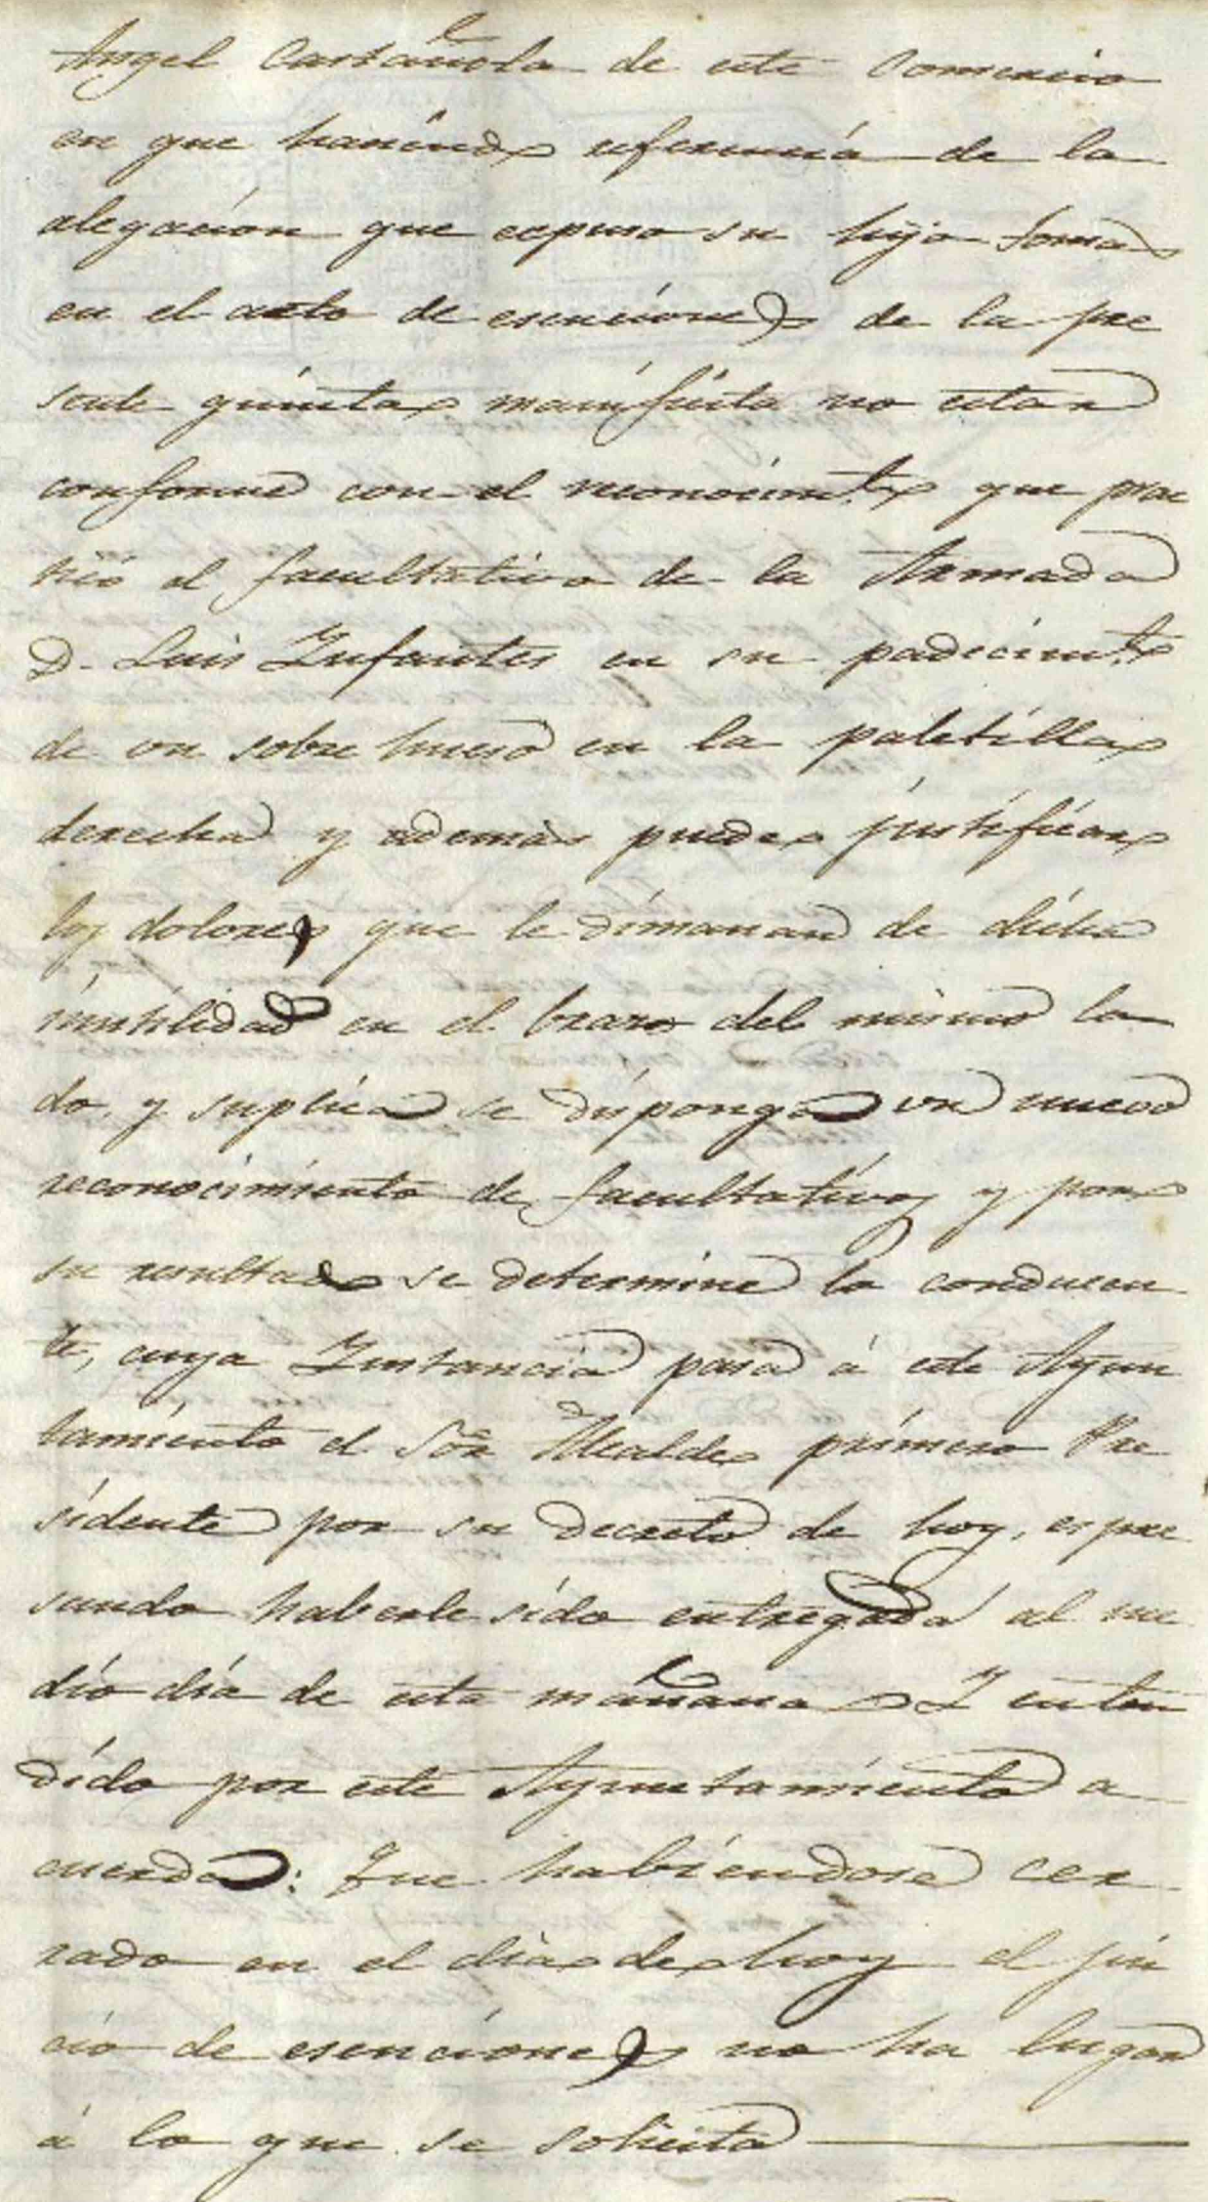 Angel Castañola de este Comercio
en que haciendo referencia de la
alegacion que espuso su hijo Tomas
en el acto de esenciones de la pre
sente quinta manifiesta no estar
conforme con el reconocimto que prac
ticó el facultativo de la Armada
D. Luis Infantes en su padecimto
de un sobre hueso en la paletilla
derecha y además puede justificar
los dolores que le dimanan de dicha
inutilidad en el brazo del mismo la
do, y suplica se disponga un nuevo
reconocimiento de facultativos y por
su resultado se determine lo conducen
te, cuya Instancia pasa á este Ayun
tamiento el Sôr Alcalde primero Pre
sidente por su decreto de hoy, espre
sando haberle sido entregada al me
dio dia de esta mañana Y enten
dido por este Ayuntamiento a
cuerda: Que habiendose cer
rado en el dia de hoy el jui
cio de esenciones no ha lugar
á lo que se solicita